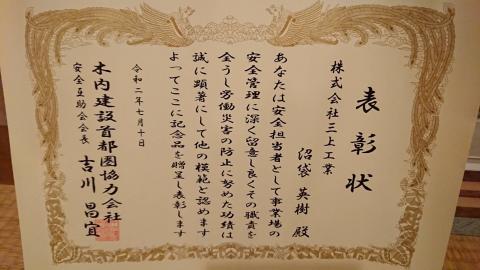 表彰状
株式会社三上工業
沼袋英樹 殿
あなたは安全担当者として事業場の
安全管理に深く留意し良くその職責を
全うし労働災害の防止に努めた功績は
誠に顕著にして他の模範と認めます
よってここに記念品を贈呈し表彰します
令和二年七月十日
木内建設首都圏協力会社
安全互助会会長 吉川昌宜